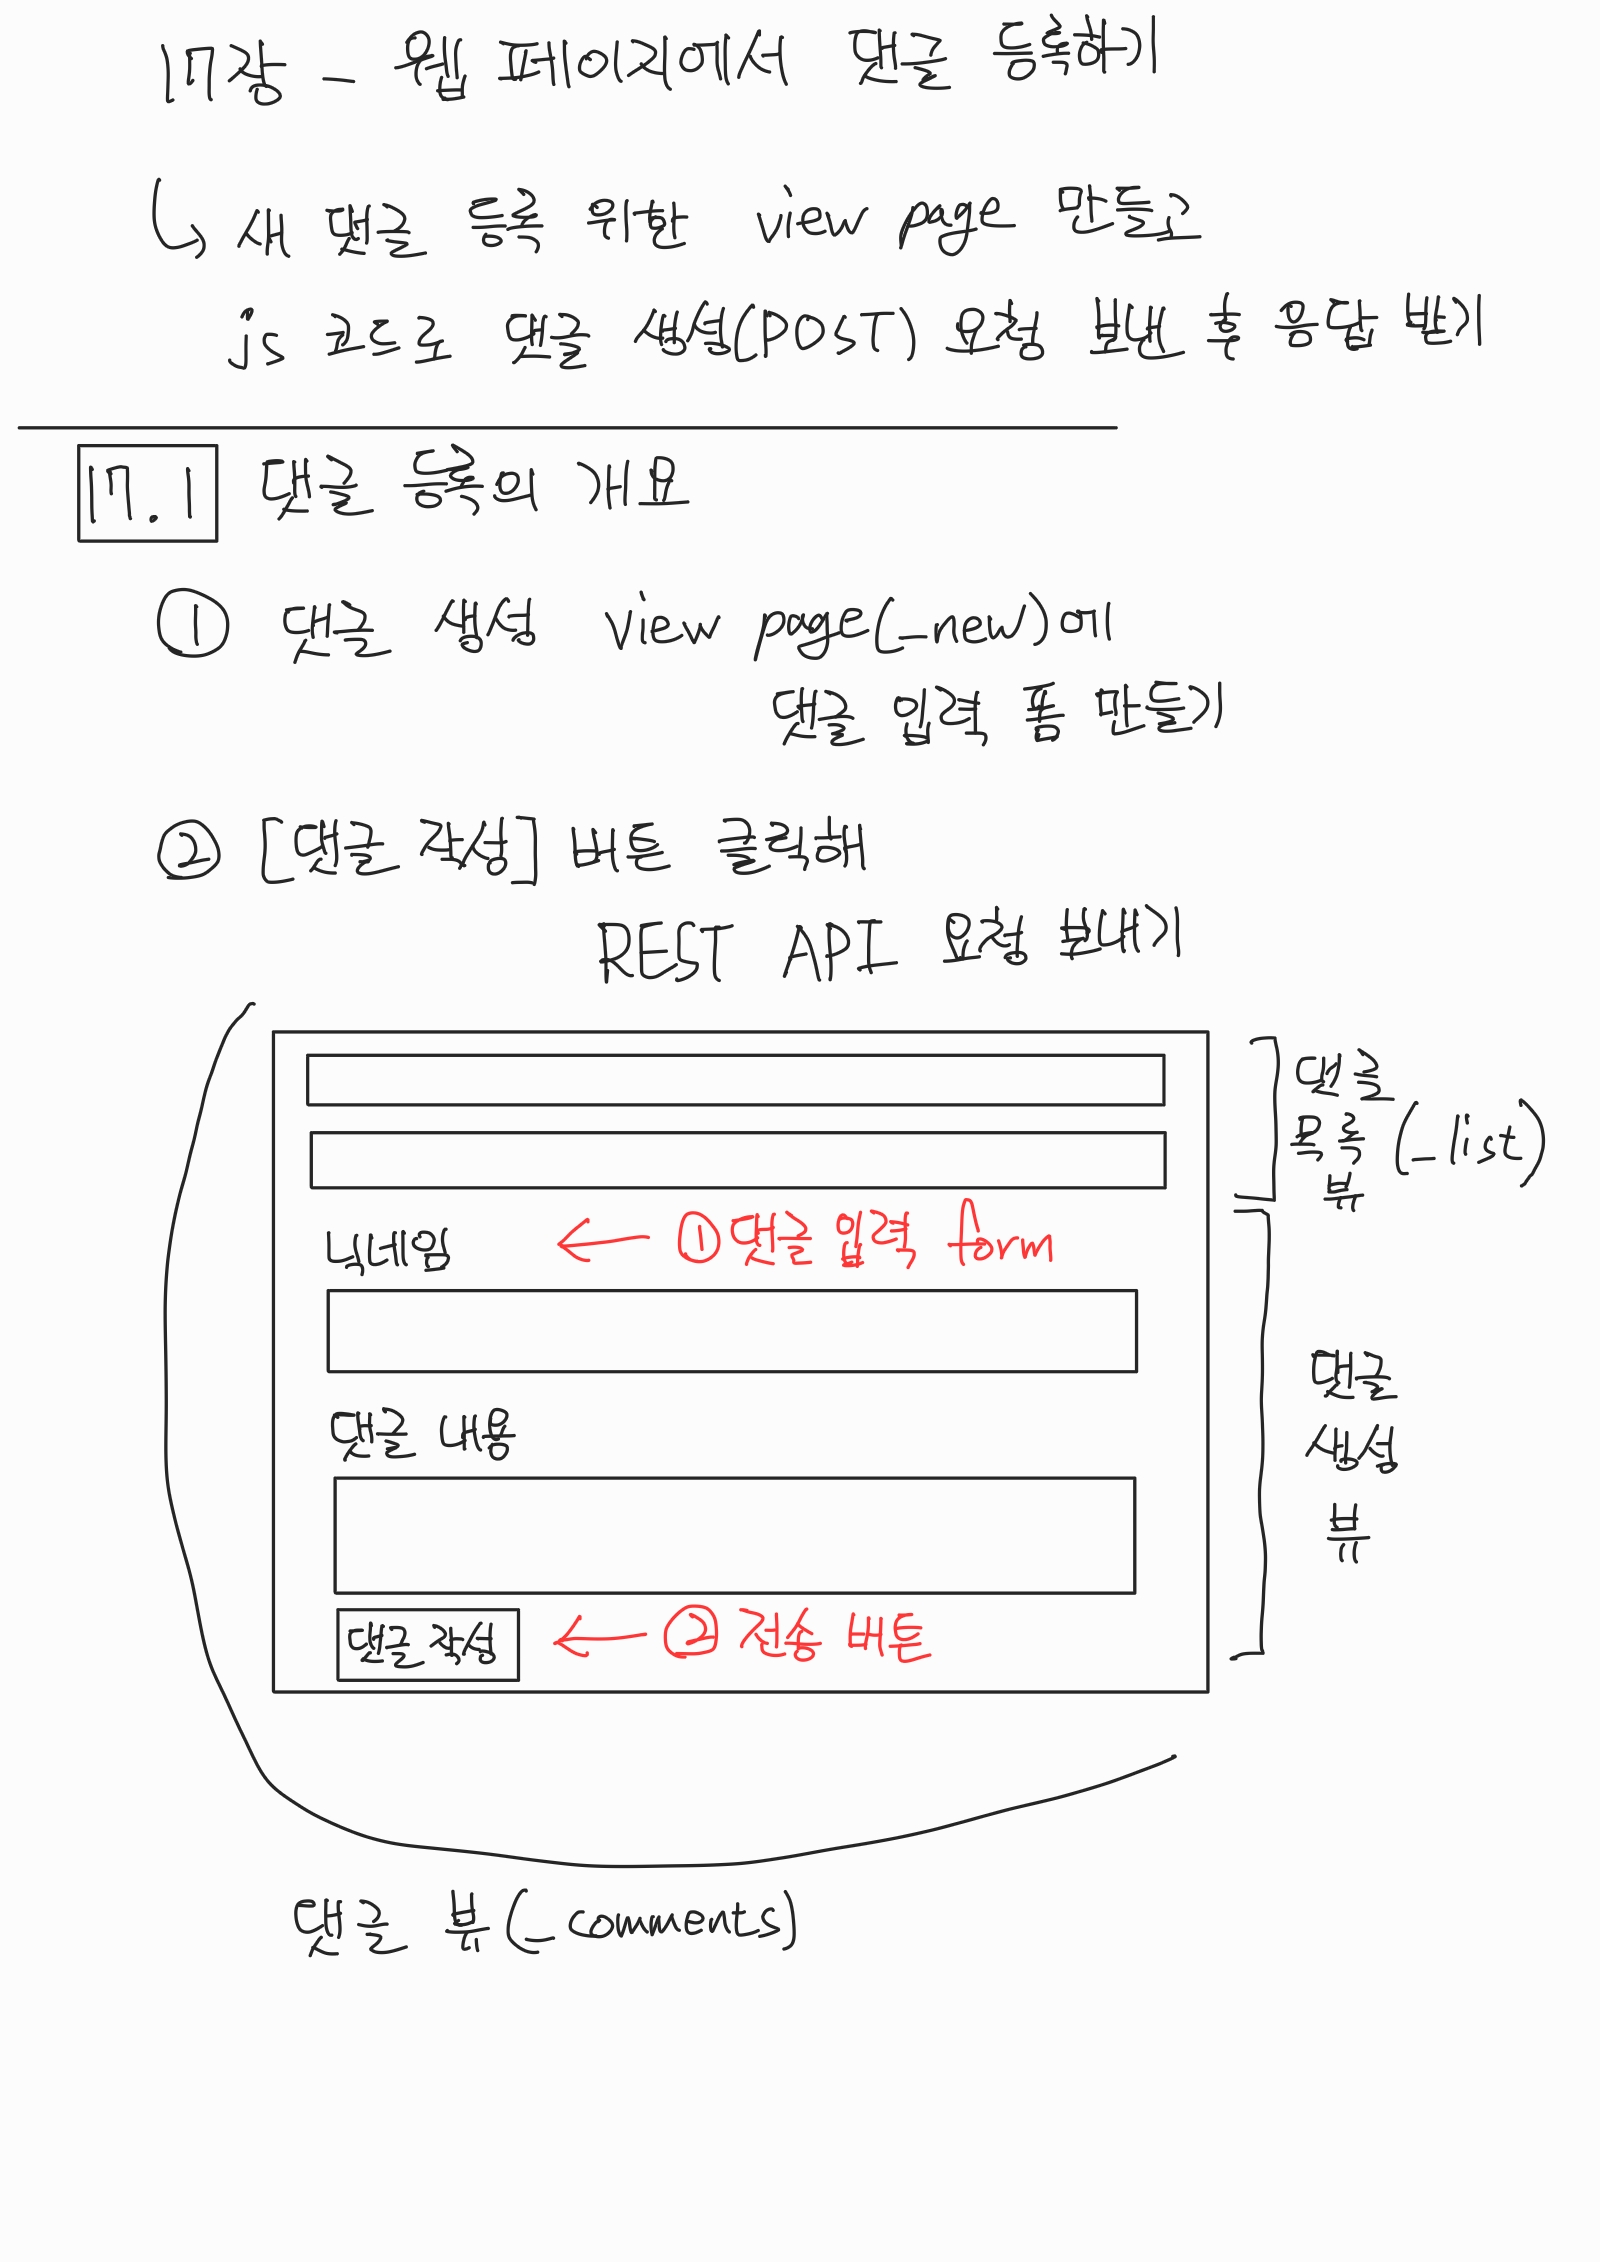 17장 - 웹 페이지에서 댓글 등록하기
↳ 새 댓글 등록 위한 view page 만들고
js 코드로 댓글 생성(POST) 요청 보낸 후 응답 받기
17.1 댓글 등록의 개요
① 댓글 생성 view page(_new)에
댓글 입력 폼 만들기
② [댓글 작성] 버튼 클릭해
REST API 요청 보내기
댓글
목록 (_list)
뷰
닉네임 ← ① 댓글 입력 form
댓글 내용
댓글
생성
뷰
댓글 작성 ← ② 전송 버튼
댓글 뷰(_comments)